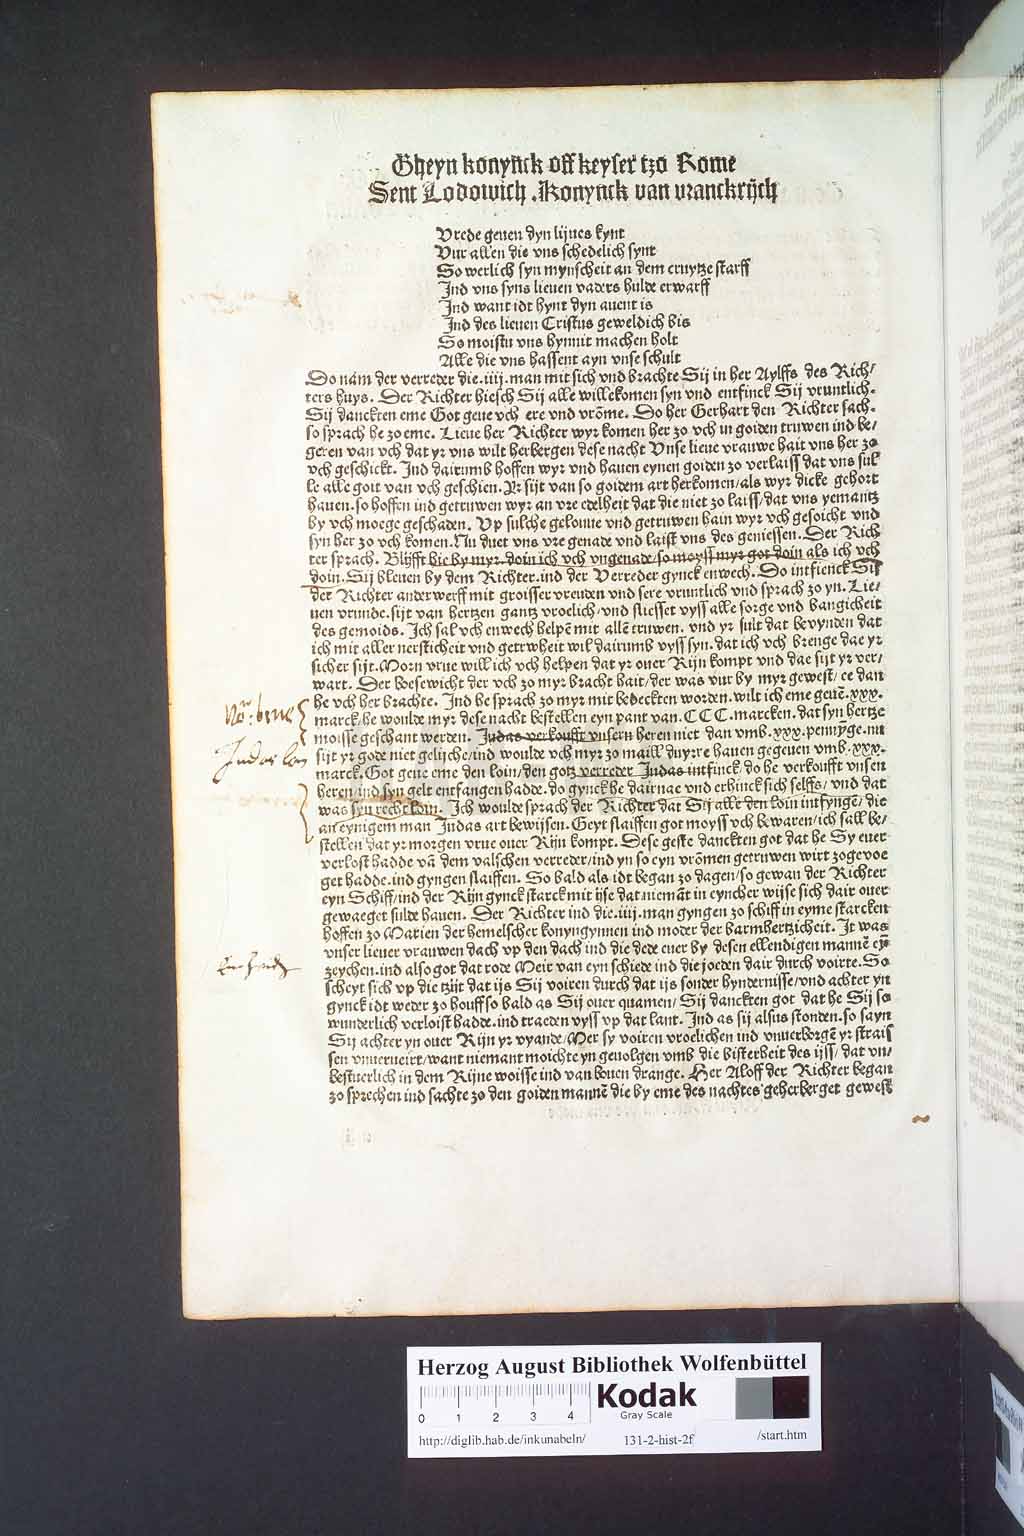 Gheyn konynck off keyser tzo Rome
Sent Lodowich .Konynck van vranckrijch
Vrede geuen dyn lijues kynt
Vur allen die vns schedelich synt
So werlich syn mynscheit an dem cruytze starff
Ind vns syns lieuen vaders hulde erwarff
Ind want idt hynt dyn auent is
Ind des lieuen Cristus geweldich bis
So moistu vns hynnit machen holt
Alle die vns hassent ayn vnse schult
Do nam der verreder die.iiij.man mit sich vnd brachte Sij in her Aylffs des Rich/
ters huys. Der Richter hiesch Sij alle willekomen syn vnd entfinck Sij vruntlich.
Sij danckten eme Got geue vch ere vnd vrōme. Do her Gerhart den Richter sach.
so sprach he zo eme. Lieue her Richter wyr komen her zo vch in goiden truwen ind be/
geren van vch dat yr vns wilt herbergen dese nacht Vnse lieue vrauwe hait vns her zo
vch geschickt. Ind dairumb hoffen wyr vnd hauen eynen goiden zo verlaiss dat vns sul
le alle goit van vch geschien. Yr sijt van so goidem art herkomen/als wyr dicke gehort
hauen.so hoffen ind getruwen wyr an vre edelheit dat die niet zo laiss/dat vns yemantz
by vch moege geschaden. Vp sulche geloiue vnd getruwen hain wyr vch gesoicht vnd
syn her zo vch komen. Nu duet vns vre genade vnd laist vns des geniessen. Der Rich
ter sprach. Blijfft hie by myr.doin ich vch vngenade/so moyss myr got doin als ich vch
doin. Sij bleuen by dem Richter.ind der Verreder gynck enwech. Do intfienck Sij
der Richter anderwerff mit groisser vreuden vnd sere vruntlich vnd sprach zo yn. Lie/
uen vrunde.sijt van hertzen gantz vroelich/vnd sliesset vyss alle sorge vnd bangicheit
des gemoids. Ich sal vch enwech helpē mit allē truwen. vnd yr sult dat bevynden dat
ich mit aller nersticheit vnd getrwheit wil dairumb vyss syn.dat ich vch brenge dae yr
sicher sijt.Morn vrue will ich vch helpen dat yr ouer Rijn kompt vnd dae sijt yr ver/
wart. Der boesewicht der vch zo myr bracht hait/der was vur by myr gewest/ ee dan
he vch her brachte. Ind he sprach zo myr mit bedeckten worden.wilt ich eme geuē.xxx.
marck.he woulde myr dese nacht bestellen eyn pant van.CCC.marcken.dat syn hertze
moisse geschant werden. Judas verkoufft vnsern heren niet dan vmb.xxx.pennyge.nu
sijt yr gode niet gelijche/ind woulde vch myr zo maill duyrre hauen gegeuen vmb.xxx.
marck.Got geue eme den loin/den gotz verreder Judas intfinck.do he verkoufft vnsen
heren/ind syn gelt entfangen hadde.do gynck he dairnae vnd erhinck sich selffs/ vnd dat
was syn recht loin. Ich woulde sprach der Richter dat Sij alle den loin intfyngē/ die
an eynigem man Judas art bewijsen. Geyt slaiffen got moyss vch bewaren/ich sall be/
stellen dat yr morgen vrue ouer Rijn kompt. Dese geste danckten got dat he Sy euer
verlost hadde vā dem valschen verreder/ind yn so eyn vrōmen getruwen wirt zogevoe
get hadde.ind gyngen slaiffen. So bald als idt began zo dagen/so gewan der Richter
eyn Schiff/ind der Rijn gynck starck mit ijse dat niemāt in eyncher wijse sich dair ouer
gewaeget sulde hauen. Der Richter ind die.iiij.man gyngen zo schiff in eyme starcken
hoffen zo Marien der hemelscher konyngynnen ind moder der barmhertzicheit. It was
vnser lieuer vrauwen dach vp den dach ind die dede euer by desen ellendigen mannē eȳ
zeychen.ind also got dat rode Meir van eyn schiede ind die joeden dair durch voirte.So
scheyt sich vp die tzijt dat ijs Sij voiren durch dat ijs sonder hyndernisse/vnd achter yn
gynck idt weder zo houff so bald as Sij ouer quamen/ Sij danckten got dat he Sij so
wunderlich verloist hadde.ind traeden vyss vp dat lant. Ind as sij alsus stonden.so sayn
Sij achter yn ouer Rijn yr vyande/Mer sy voiren vroelichen ind vnuerborgē yr strais
sen vnuerueirt/want niemant moichte yn geuolgen vmb die bisterheit des ijss/ dat vn/
bestuerlich in dem Rijne woisse ind van bouen drange. Her Aloff der Richter began
zo sprechen ind sachte zo den goiden mannē die by eme des nachtes geherberget gewest
Judas lon
Herzog August Bibliothek Wolfenbüttel
0 1 2 3 4
Kodak
Gray Scale
http://diglib.hab.de/inkunabeln/ 131-2-hist-2f /start.htm